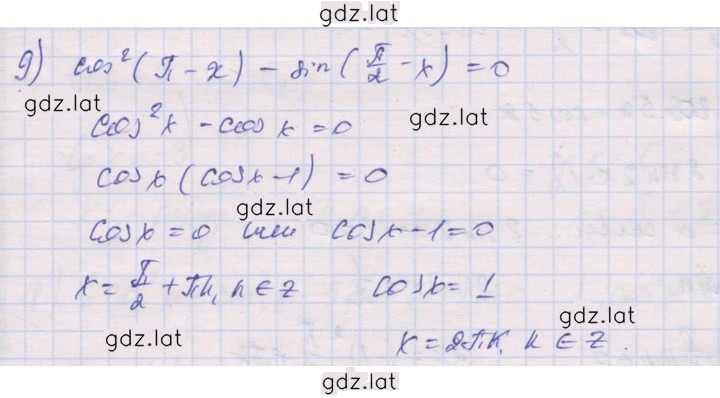 gdz.lat
g) cos²(π - x) - sin(π/2 - x) = 0
gdz.lat
cos²x - cos x = 0
gdz.lat
cosx (cosx - 1) = 0
gdz.lat
cosx = 0 или cosx - 1 = 0
x = π/2 + πk, k ∈ Z cosx = 1
gdz.lat
gdz.lat
x = 2πk, k ∈ Z.
gdz.lat